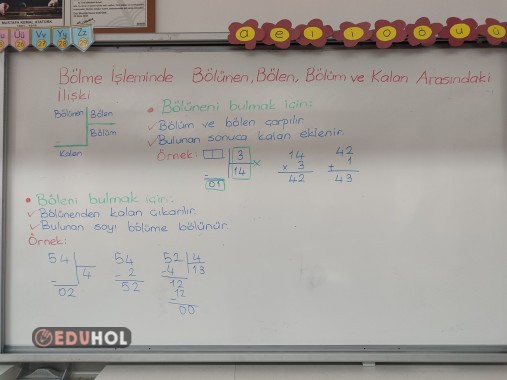 Üü Vv Yy Zz
26 27 28 29
a e ı i o ö u ü
Bölme İşleminde Bölünen, Bölen, Bölüm ve Kalan Arasındaki
İlişki
Bölünen Bölen
Bölüm
-
Kalan
• Bölüneni bulmak için:
✓ Bölüm ve bölen çarpılır.
✓ Bulunan sonuca kalan eklenir.
Örnek: 3
14
-
01
x
14
x 3
42
42
+ 1
43
• Böleni bulmak için:
✓ Bölünenden kalan çıkarılır.
✓ Bulunan sayı bölüme bölünür.
Örnek:
54
4
-
02
54
- 2
52
52 4
-4 13
12
-12
00
EDUHOL